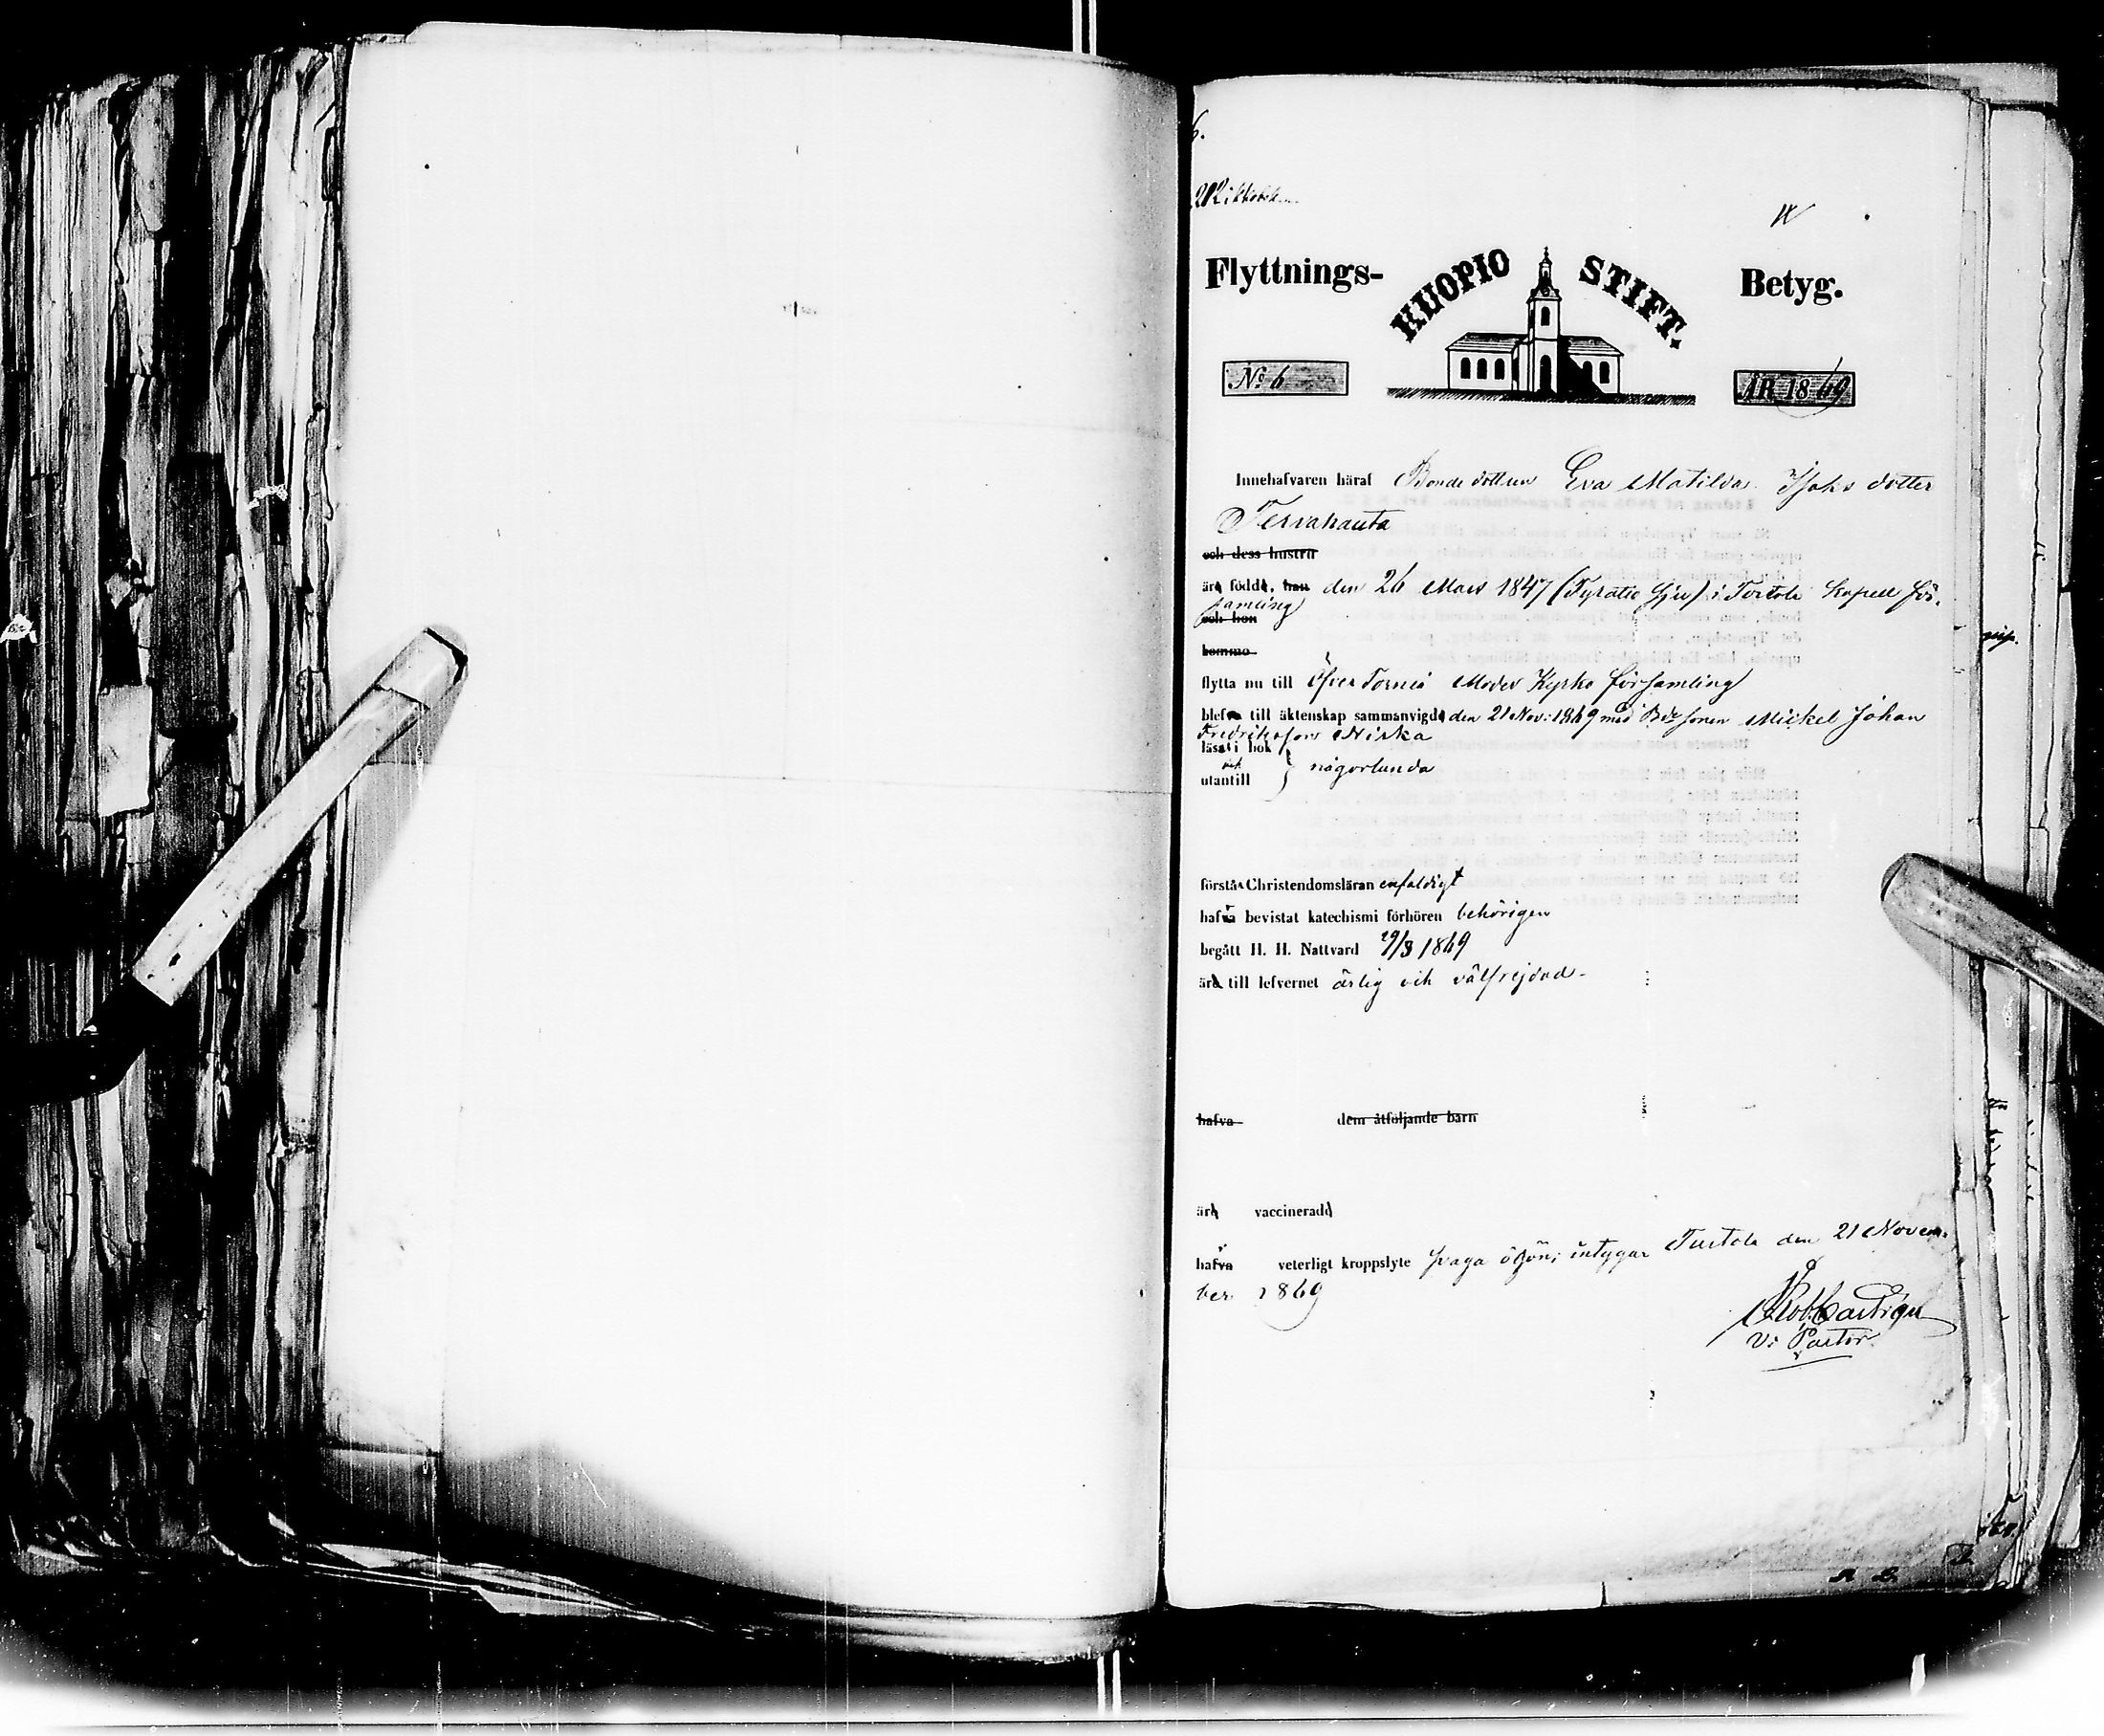 6.
IX
Flyttnings- KUOPIO STIFT. Betyg.
No 6 ÅR 1869
Innehafvaren häraf Bondedottren Eva Matilda Isaks dotter
Tervahauta
och dess hustru
äro född, han den 26 Mars 1847 (Fyratio sju) i Turtola Kapell för-
samling
och hon
komma
flytta nu till Öfver Torneå Moder Kyrko församling
blefvo till äktenskap sammanvigde den 21 Nov: 1869 med Bdesonen Mickel Johan
Fredriksson Niska
läsa i bok
och
utantill } någorlunda
förstå Christendomsläran enfaldigt
hafva bevistat katechismi förhören behörigen
begått H. H. Nattvard 29/8 1869
äro till lefvernet ärlig och välfrejdad
hafva dem åtföljande barn
äro vaccinerade
hafva veterligt kroppslyte svaga ögon; intygar Turtola den 21 Novem-
ber 1869
V: Pastor